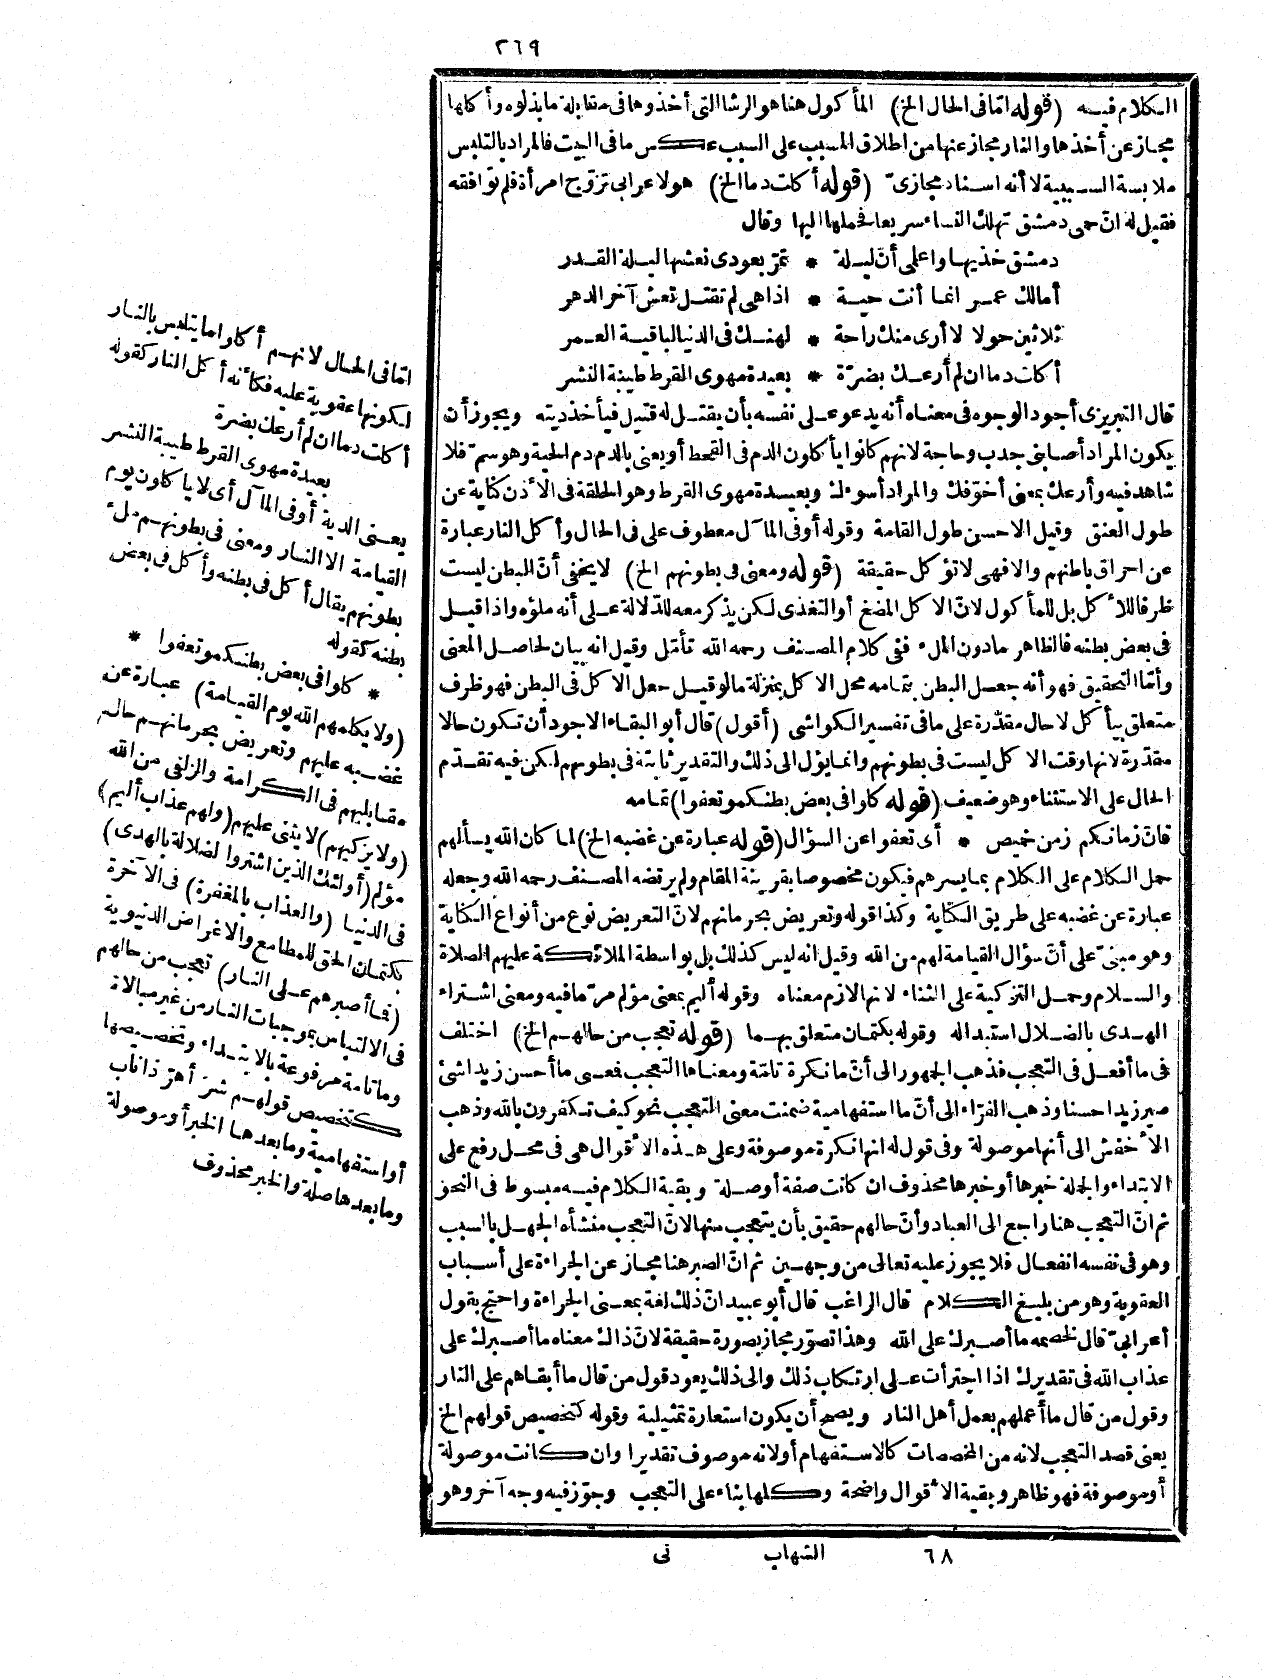 ٢٦٩
الكلام فيه (قوله اما فى الحال الخ) المأكول هنا هو الرشا التى أخذوها فى مقابلة ما بذلوه وأكلها
مجاز عن أخذها والنار مجاز عنها من اطلاق المسبب على السبب عكس ما فى البيت فالمراد بالتلبس
ملابسة السببية لا أنه اسناد مجازىّ (قوله أكلت دما الخ) هو لاعرابى تزوّج امرأة فلم توافقه
فقيل له انّ حمى دمشق تهلك النساء سريعا فحملها اليها وقال
دمشق خذيها واعلمى أنّ ليلة * تمرّ بعودى نعشها ليلة القدر
أمالك عمر انما أنت حية * اذا هى لم تقتل تعش آخر الدهر
ثلاثين حولا لا أرى منك راحة * لهنك فى الدنيا لباقية العمر
أكلت دما ان لم أرعك بضرّة * بعيدة مهوى القرط طيبة النشر
قال التبريزى أجود الوجوه فى معناه أنه يدعو على نفسه بأن يقتل له قتيل فيأخذ ديته ويجوز أن
يكون المراد أصابنى جدب وحاجة لانهم كانوا يأكلون الدم فى القحط أو يعنى بالدم دم الحية وهو سمّ فلا
شاهد فيه وأرعك بمعنى أخوّفك والمراد أسوءك وبعيدة مهوى القرط وهو الحلقة فى الأذن كناية عن
طول العنق وقيل الاحسن طول القامة وقوله أو فى المآل معطوف على فى الحال وأكل النار عبارة
عن احراق باطنهم والا فهى لا تؤكل حقيقة (قوله ومعنى فى بطونهم الخ) لا يخفى أنّ البطن ليست
ظرفا للأكل بل للمأكول لانّ الاكل المضغ أو التغذى لكن يذكر معه للدّلالة على أنه ملؤه واذا قيل
فى بعض بطنه فالظاهر مادون الملء ففى كلام المصنف رحمه الله تأمّل وقيل انه بيان لحاصل المعنى
وأمّا التحقيق فهو أنه جعل البطن بتمامه محل الاكل بمنزلة ما لو قيل جعل الاكل فى البطن فهو ظرف
متعلق بيأكل لا حال مقدّرة على ما فى تفسير الكواشى (أقول) قال أبو البقاء الاجود أن تكون حالا
مقدّرة لانها وقت الاكل ليست فى بطونهم وانما يؤل الى ذلك والتقدير ثابتة فى بطونهم لكن فيه تقدّم
الحال على الاستثناء وهو ضعيف (قوله كلوا فى بعض بطنكمو تعفوا) تمامه
فانّ زمانكم زمن خميص * أى تعفوا عن السؤال (قوله عبارة عن غضبه الخ) لما كان الله يسألهم
حمل الكلام على الكلام بما يسرهم فيكون مخصوصا بقرينة المقام ولم يرتضه المصنف رحمه الله وجعله
عبارة عن غضبه على طريق الكناية وكذا قوله وتعريض بحرمانهم لانّ التعريض نوع من أنواع الكناية
وهو مبنىّ على أنّ سؤال القيامة لهم من الله وقيل انه ليس كذلك بل بواسطة الملائكة عليهم الصلاة
والسلام وحمل التزكية على الثناء لانها لازم معناه وقوله أليم بمعنى مؤلم مرّ مافيه ومعنى اشتراء
الهدى بالضلال استبداله وقوله بكتمان متعلق بهما (قوله تعجب من حالهم الخ) اختلف
فى ما أفعل فى التعجب فذهب الجمهور الى أنّ ما نكرة تامّة ومعناها التعجب فمعنى ما أحسن زيدا شئ
صير زيدا حسنا وذهب الفرّاء الى أنّ ما استفهامية ضمنت معنى التعجب نحو كيف تكفرون بالله وذهب
الأخفش الى أنها موصولة وفى قول له انها نكرة موصوفة وعلى هذه الأقوال هى فى محل رفع على
الابتداء والجملة خبرها أو خبرها محذوف ان كانت صفة أو صلة وبقية الكلام فيه مبسوط فى النحو
ثم انّ التعجب هنا راجع الى العباد وأنّ حالهم حقيق بأن يتعجب منها لانّ التعجب منشأه الجهل بالسبب
وهو فى نفسه انفعال فلا يجوز عليه تعالى من وجهين ثم انّ الصبر هنا مجاز عن الجراءة على أسباب
العقوبة وهو من بليغ الكلام قال الراغب قال أبو عبيد انّ ذلك لغة بمعنى الجراءة واحتج بقول
أعرابىّ قال لخصمه ما أصبرك على الله وهذا تصوّر مجاز بصورة حقيقة لانّ ذاك معناه ما أصبرك على
عذاب الله فى تقديرك اذا اجترأت على ارتكاب ذلك والى ذلك يعود قول من قال ما أبقاهم على النار
وقول من قال ما أعملهم بعمل أهل النار ويصح أن يكون استعارة تمثيلية وقوله كتخصيص قولهم الخ
يعنى قصد التعجب لانه من المخصصات كالاستفهام أو لانه موصوف تقديرا وان كانت موصولة
أو موصوفة فهو ظاهر وبقية الأقوال واضحة وكلها بناء على التعجب وجوّز فيه وجه آخر وهو
امّا فى الحال لانهم أكلوا ما يتلبس بالنار
لكونها عقوبة عليه فكأنه أكل النار كقوله
أكلت دما ان لم أرعك بضرة
بعيدة مهوى القرط طيبة النشر
يعنى الدية أو فى المآل أى لا يأكلون يوم
القيامة الا النار ومعنى فى بطونهم ملء
بطونهم يقال أكل فى بطنه وأكل فى بعض
بطنه كقوله
* كلوا فى بعض بطنكمو تعفوا *
(ولا يكلمهم الله يوم القيامة) عبارة عن
غضبه عليهم وتعريض بحرمانهم حال
مقابليهم فى الكرامة والزلفى من الله
(ولا يزكيهم) لا يثنى عليهم (ولهم عذاب أليم)
مؤلم (أولئك الذين اشتروا الضلالة بالهدى)
فى الدنيا (والعذاب بالمغفرة) فى الآخرة
بكتمان الحق للمطامع والاغراض الدنيوية
(فما أصبرهم على النار) تعجب من حالهم
فى الالتباس بموجبات النار من غير مبالاة
وما تامة مرفوعة بالابتداء وتخصيصها
كتخصيص قولهم شرّ أهرّ ذا ناب
أو استفهامية وما بعدها الخبر أو موصولة
وما بعدها صلة والخبر محذوف
٦٨ الشهاب نى